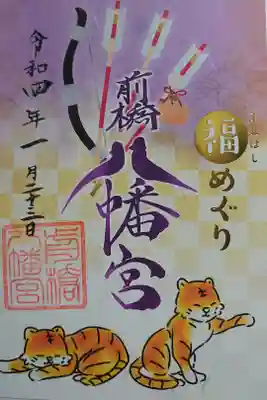 まえばし
福めぐり
前橋
八幡宮
令和四年一月二十三日
前橋
八幡宮